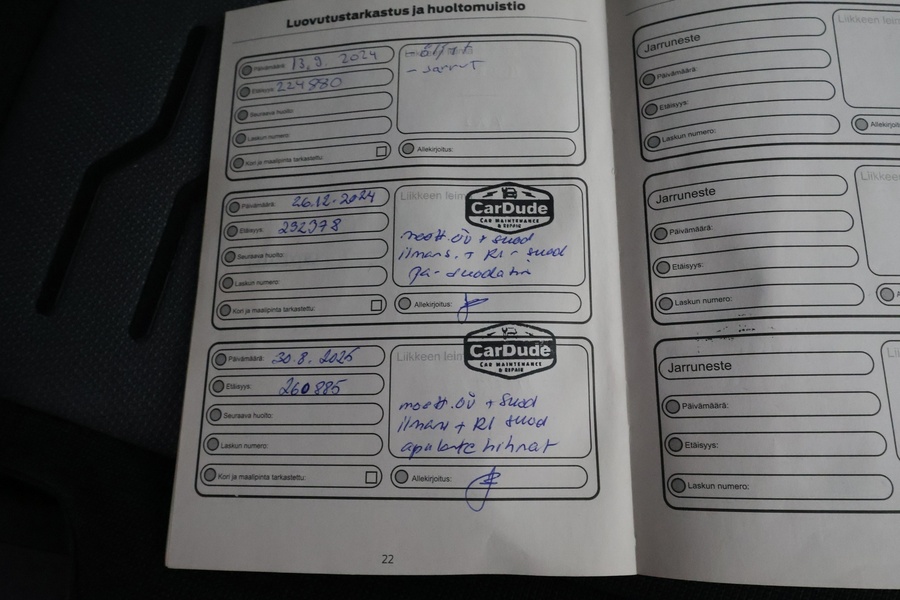 Luovutustarkastus ja huoltomuistio
Päivämäärä: 13.9.2024
Etäisyys: 224880
Seuraava huolto:
Laskun numero:
Kori ja maalipinta tarkastettu:
- Jarrut
Allekirjoitus:
Päivämäärä: 26.12.2024
Etäisyys: 232378
Seuraava huolto:
Laskun numero:
Kori ja maalipinta tarkastettu:
Liikkeen leim
CarDude
CAR MAINTENANCE
& REPAIR
moott.öö + suod
ilmans. + RI - suod
pa - suodatin
Allekirjoitus:
Päivämäärä: 30.8.2025
Etäisyys: 260885
Seuraava huolto:
Laskun numero:
Kori ja maalipinta tarkastettu:
Liikkeen leim
CarDude
CAR MAINTENANCE
& REPAIR
moott.öö + suod
ilmans + RI suod
apulaite hihnat
Allekirjoitus:
22
Jarruneste
Päivämäärä:
Etäisyys:
Laskun numero:
Liikkeen
Allekirjoi
Jarruneste
Päivämäärä:
Etäisyys:
Laskun numero:
Liikkeen
A
Jarruneste
Päivämäärä:
Etäisyys:
Laskun numero: